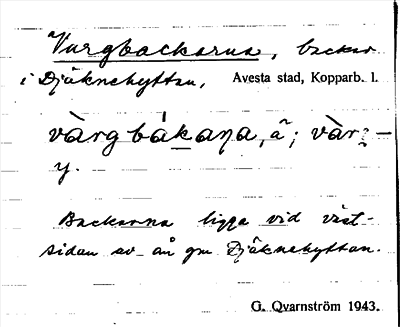 Vargbackarna, backar
i Djäknehyttan, Avesta stad, Kopparb. l.
vàrgbákaṇa, ã; vàr:-
y.
Backarna ligga vid väst-
sidan av ån gm Djäknehyttan.
G. Qvarnström 1943.